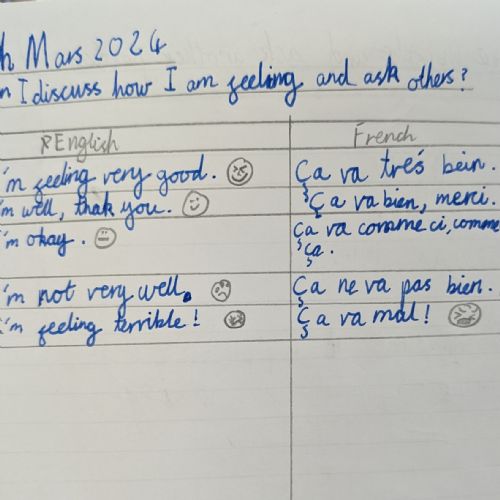 h Mars 2024
n I discuss how I am feeling and ask others?
English French
I'm feeling very good. Ça va trés bein.
I'm well, thak you. Ça va bien, merci.
I'm okay. Ça va comme ci, comme
ça.
I'm not very well. Ça ne va pas bien.
I'm feeling terrible! Ça va mal!